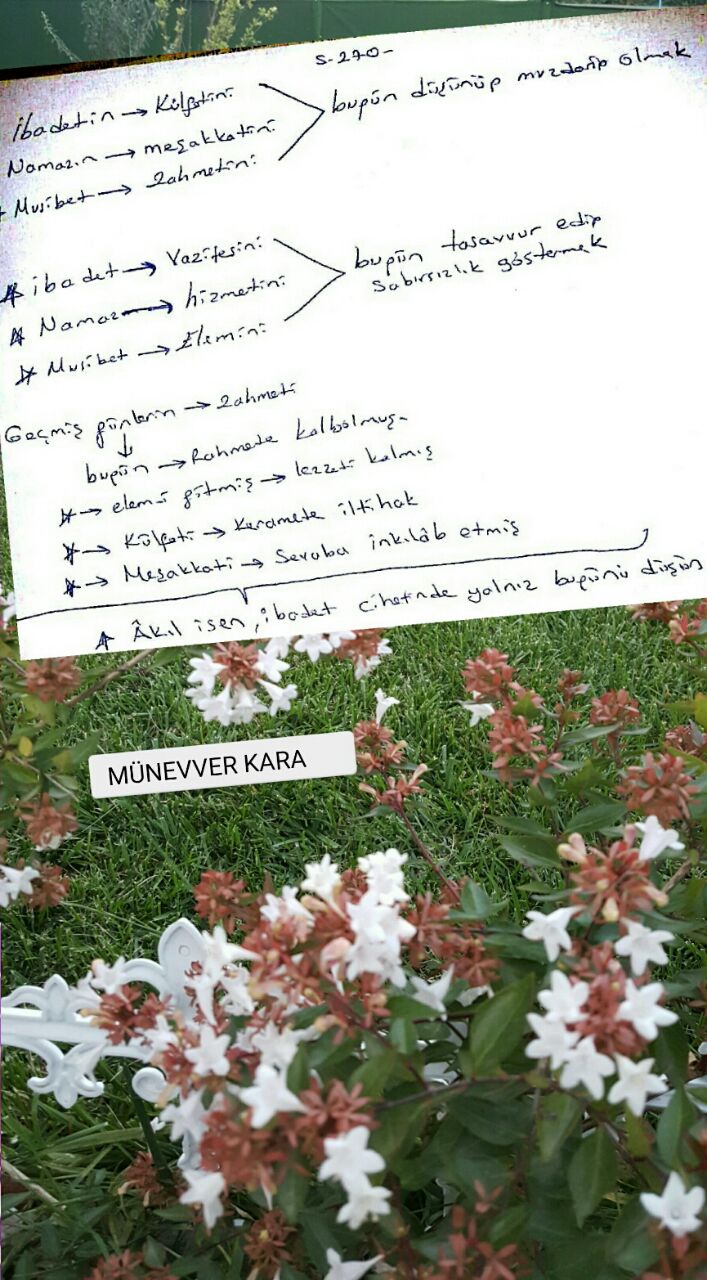 S-270-
İbadetin → Külfetini
Namazın → meşakkatini
Musibet → Zahmetini
bugün düşünüp muzdarip olmak
ibadet → Vazifesini
Namaz → hizmetini
Musibet → Elemini
bugün tasavvur edip
Sabırsızlık göstermek
Geçmiş günlerin → zahmeti
↓
bugün → Rahmete kalbolmuş
→ elemi gitmiş → lezzeti kalmış
→ Külfeti → Keramete iltihak
→ Meşakkati → Sevaba inkılâb etmiş
Âkıl isen, ibadet cihetinde yalnız bugünü düşün
MÜNEVVER KARA